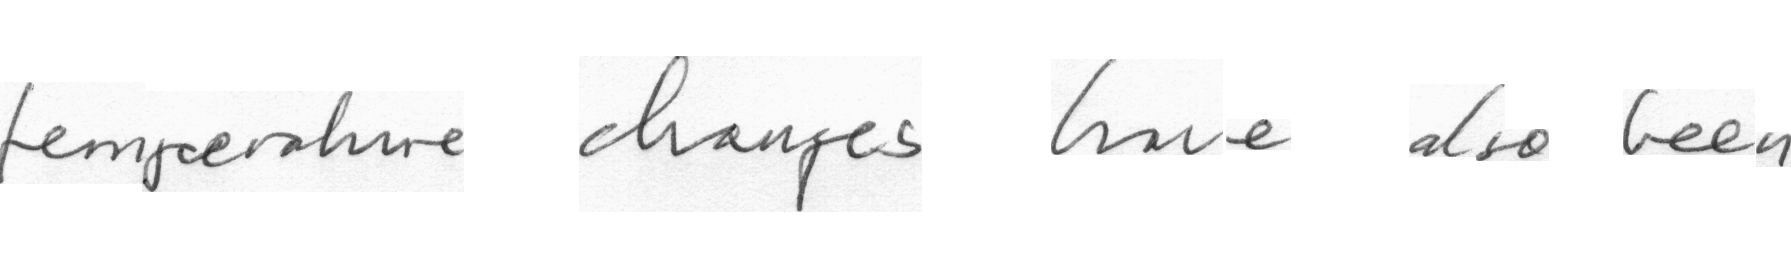 temperature changes have also been